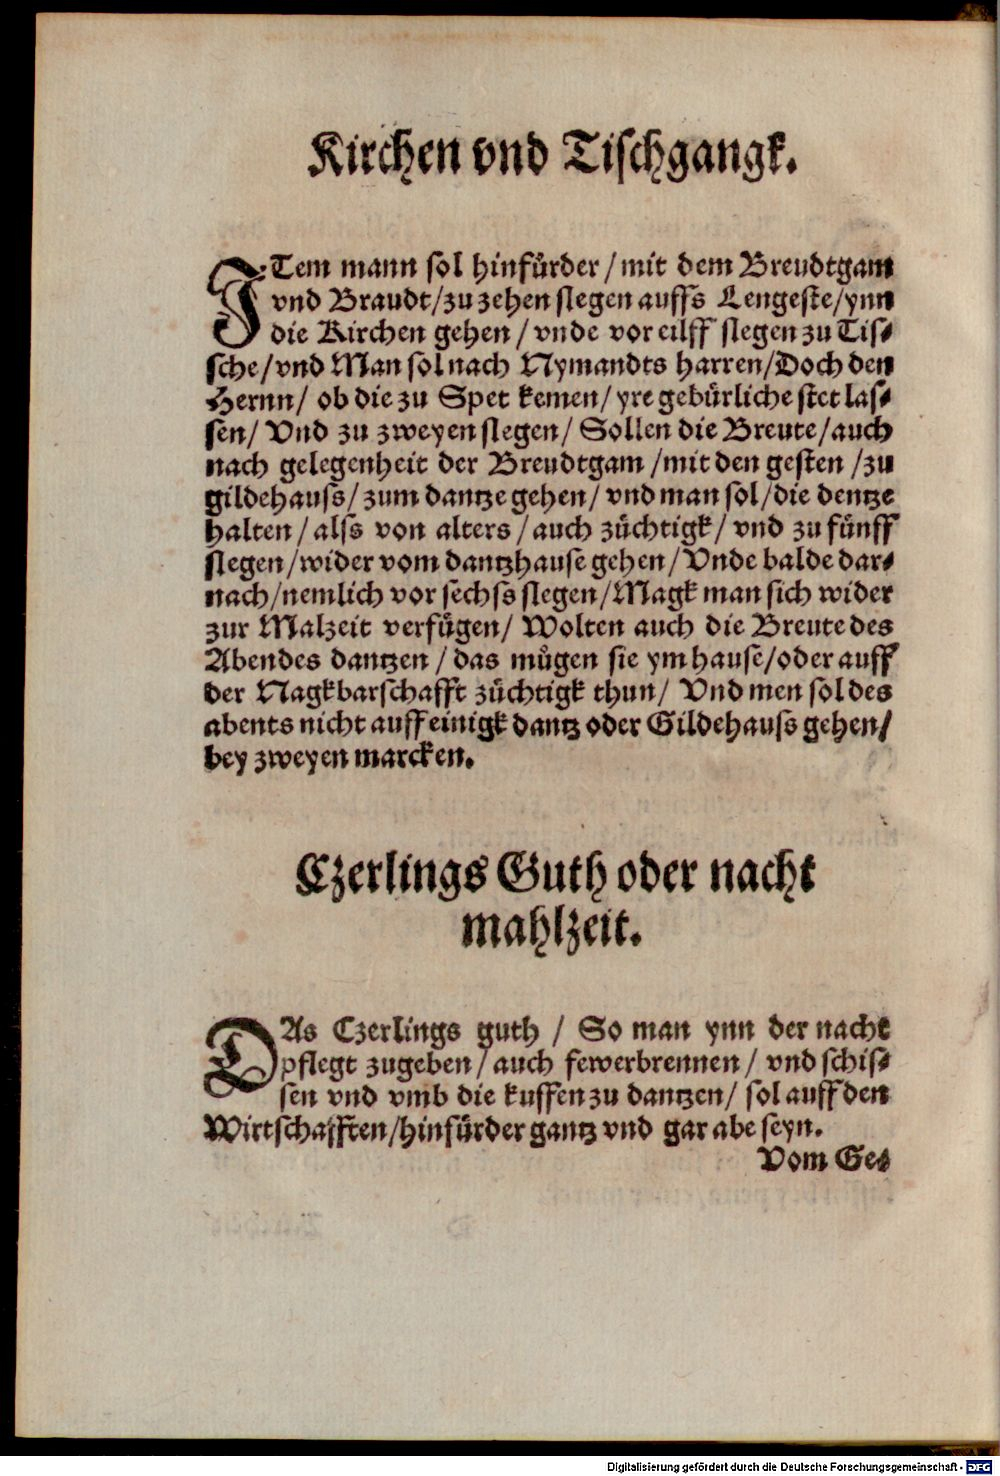 Kirchen vnd Tischgangk.
ITem mann sol hinfürder / mit dem Breudtgam
vnd Braudt / zu zehen slegen auffs Lengeste / ynn
die Kirchen gehen / vnde vor eilff slegen zu Tis⸗
sche / vnd Man sol nach Nymandts harren / Doch den
Hernn / ob die zu Spet kemen / yre gebürliche stet las⸗
sen / Vnd zu zweyen slegen / Sollen die Breute / auch
nach gelegenheit der Breudtgam / mit den gesten / zu
gildehauss / zum dantze gehen / vnd man sol / die dentze
halten / alss von alters / auch züchtigk / vnd zu fünff
slegen / wider vom dantzhause gehen / Vnde balde dar⸗
nach / nemlich vor sechss slegen / Magk man sich wider
zur Malzeit verfügen / Wolten auch die Breute des
Abendes dantzen / das mügen sie ym hause / oder auff
der Nagkbarschafft züchtigk thun / Vnd men sol des
abents nicht auff einigk dantz oder Gildehauss gehen /
bey zweyen marcken.
Czerlings Guth oder nacht
mahlzeit.
DAs Czerlings guth / So man ynn der nacht
pflegt zugeben / auch fewerbrennen / vnd schis⸗
sen vnd vmb die kuffen zu dantzen / sol auff den
Wirtschafften / hinfürder gantz vnd gar abe seyn.
Vom Ge⸗
Digitalisierung gefördert durch die Deutsche Forschungsgemeinschaft - DFG